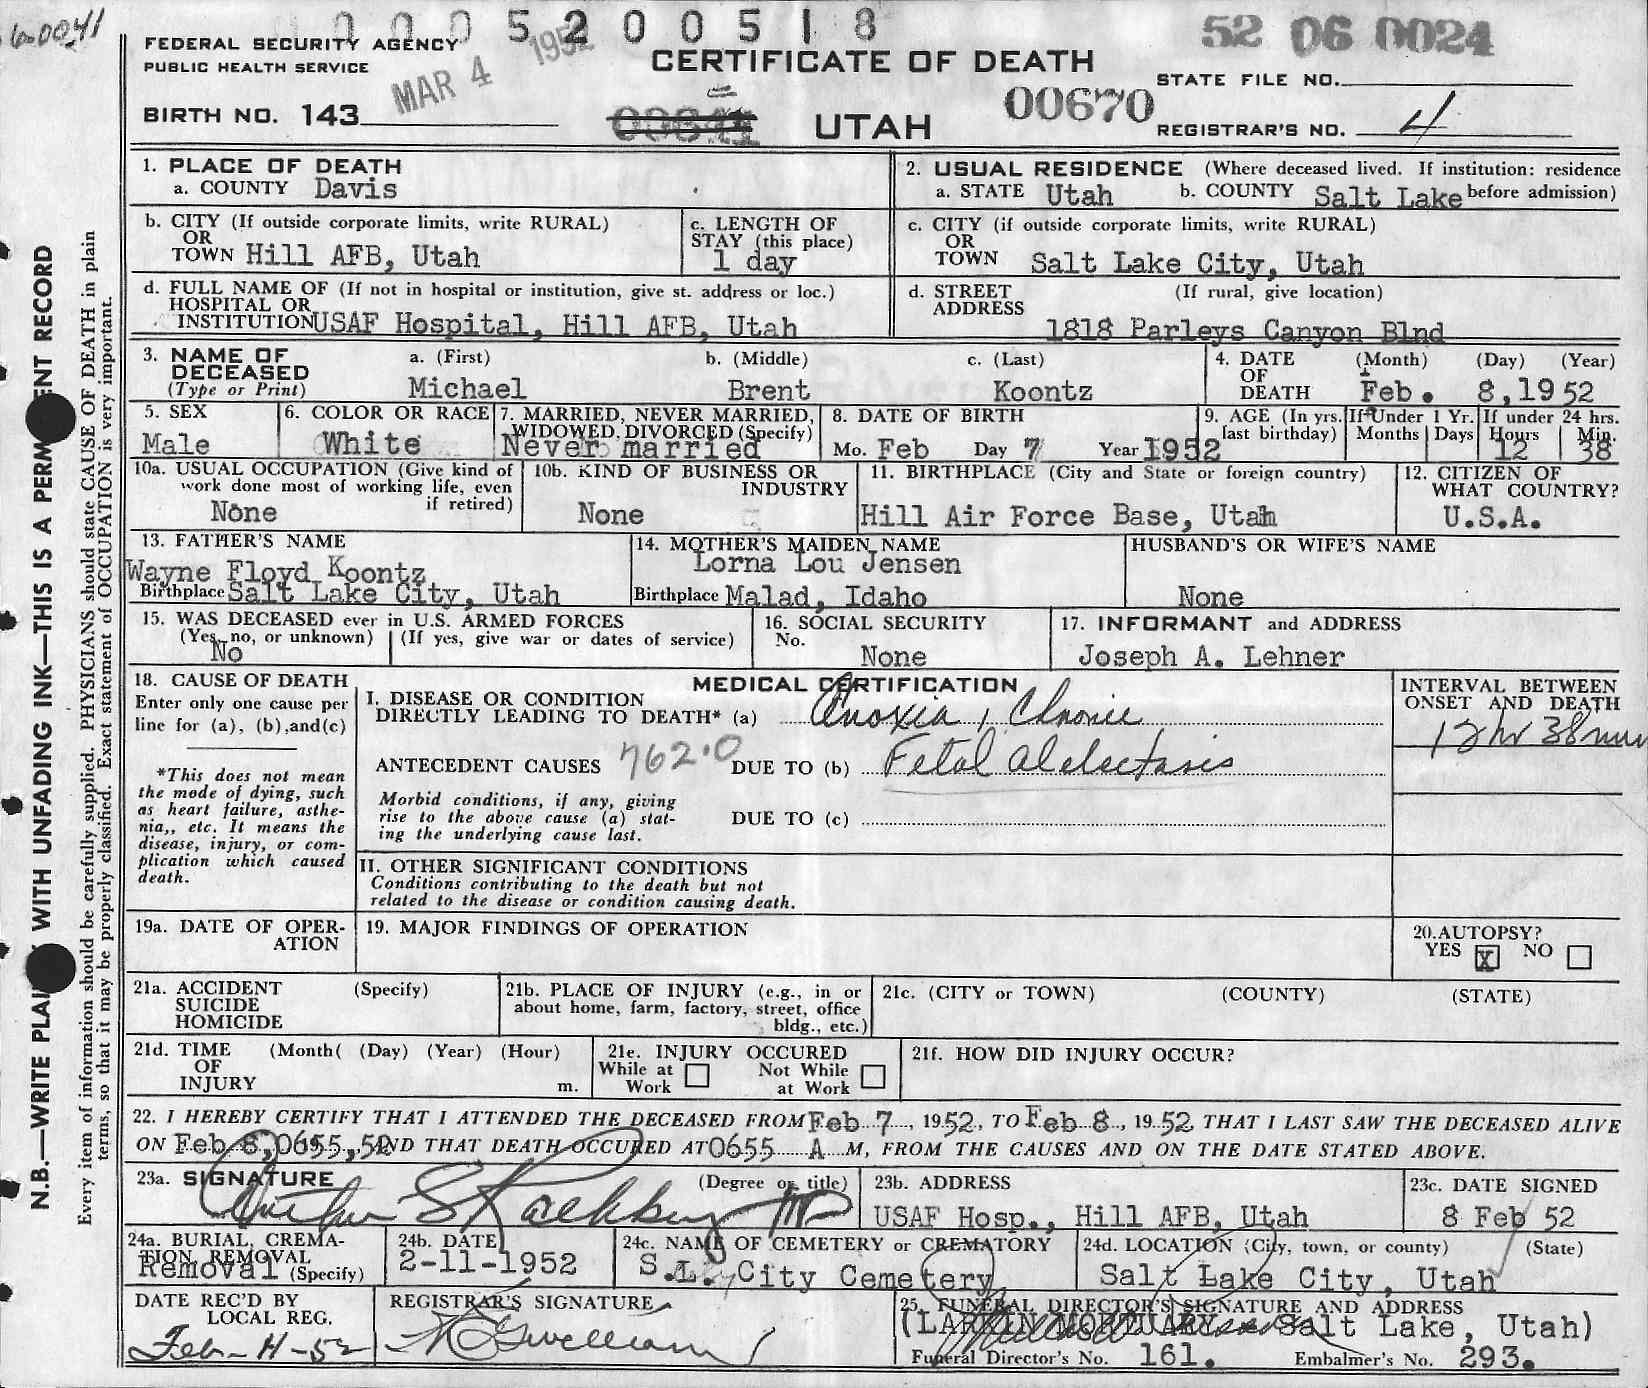 60041
0 0 0 5 2 0 0 5 1 8
52 06 0024
FEDERAL SECURITY AGENCY
PUBLIC HEALTH SERVICE
MAR 4 1952
CERTIFICATE OF DEATH
STATE FILE NO.
BIRTH NO. 143
UTAH
00670
REGISTRAR'S NO. 4
N.B.—WRITE PLAI WITH UNFADING INK—THIS IS A PERM ENT RECORD
Every item of information should be carefully supplied. PHYSICIANS should state CAUSE OF DEATH in plain
terms, so that it may be properly classified. Exact statement of OCCUPATION is very important.
1. PLACE OF DEATH
a. COUNTY Davis
2. USUAL RESIDENCE (Where deceased lived. If institution: residence
a. STATE Utah b. COUNTY Salt Lake before admission)
b. CITY (If outside corporate limits, write RURAL)
OR
TOWN Hill AFB, Utah
c. LENGTH OF
STAY (this place)
1 day
c. CITY (if outside corporate limits, write RURAL)
OR
TOWN Salt Lake City, Utah
d. FULL NAME OF (If not in hospital or institution, give st. address or loc.)
HOSPITAL OR
INSTITUTION USAF Hospital, Hill AFB, Utah
d. STREET (If rural, give location)
ADDRESS
1818 Parleys Canyon Blnd
3. NAME OF
DECEASED
(Type or Print)
a. (First) b. (Middle) c. (Last)
Michael Brent Koontz
4. DATE (Month) (Day) (Year)
OF
DEATH Feb. 8,1952
5. SEX
Male
6. COLOR OR RACE
White
7. MARRIED, NEVER MARRIED,
WIDOWED, DIVORCED (Specify)
Never married
8. DATE OF BIRTH
Mo. Feb Day 7 Year 1952
9. AGE (In yrs.
last birthday)
If Under 1 Yr.
Months Days
If under 24 hrs.
Hours Min.
12 38
10a. USUAL OCCUPATION (Give kind of
work done most of working life, even
if retired)
None
10b. KIND OF BUSINESS OR
INDUSTRY
None
11. BIRTHPLACE (City and State or foreign country)
Hill Air Force Base, Utah
12. CITIZEN OF
WHAT COUNTRY?
U.S.A.
13. FATHER'S NAME
Wayne Floyd Koontz
Birthplace Salt Lake City, Utah
14. MOTHER'S MAIDEN NAME
Lorna Lou Jensen
Birthplace Malad, Idaho
HUSBAND'S OR WIFE'S NAME
None
15. WAS DECEASED ever in U.S. ARMED FORCES
(Yes, no, or unknown) (If yes, give war or dates of service)
No
16. SOCIAL SECURITY
No.
None
17. INFORMANT and ADDRESS
Joseph A. Lehner
18. CAUSE OF DEATH
Enter only one cause per
line for (a), (b), and (c)
*This does not mean
the mode of dying, such
as heart failure, asthe-
nia,, etc. It means the
disease, injury, or com-
plication which caused
death.
MEDICAL CERTIFICATION
I. DISEASE OR CONDITION
DIRECTLY LEADING TO DEATH* (a) Anoxia, Chronic
ANTECEDENT CAUSES 762.0 DUE TO (b) Fetal Atelectasis
Morbid conditions, if any, giving
rise to the above cause (a) stat-
ing the underlying cause last.
DUE TO (c)
INTERVAL BETWEEN
ONSET AND DEATH
12 hr 38 min
II. OTHER SIGNIFICANT CONDITIONS
Conditions contributing to the death but not
related to the disease or condition causing death.
19a. DATE OF OPER-
ATION
19. MAJOR FINDINGS OF OPERATION
20. AUTOPSY?
YES X NO
21a. ACCIDENT (Specify)
SUICIDE
HOMICIDE
21b. PLACE OF INJURY (e.g., in or
about home, farm, factory, street, office
bldg., etc.)
21c. (CITY or TOWN) (COUNTY) (STATE)
21d. TIME (Month( (Day) (Year) (Hour)
OF
INJURY m.
21e. INJURY OCCURED
While at Not While
Work at Work
21f. HOW DID INJURY OCCUR?
22. I HEREBY CERTIFY THAT I ATTENDED THE DECEASED FROM Feb 7, 1952, TO Feb 8, 1952 THAT I LAST SAW THE DECEASED ALIVE
ON Feb 8, 0655, 52 AND THAT DEATH OCCURED AT 0655 A M, FROM THE CAUSES AND ON THE DATE STATED ABOVE.
23a. SIGNATURE (Degree or title)
23b. ADDRESS
USAF Hosp., Hill AFB, Utah
23c. DATE SIGNED
8 Feb 52
24a. BURIAL, CREMA-
TION, REMOVAL
Removal (Specify)
24b. DATE
2-11-1952
24c. NAME OF CEMETERY or CREMATORY
S.L. City Cemetery
24d. LOCATION (City, town, or county) (State)
Salt Lake City, Utah
DATE REC'D BY
LOCAL REG.
REGISTRAR'S SIGNATURE
25. FUNERAL DIRECTOR'S SIGNATURE AND ADDRESS
(LARKIN MORTUARY Salt Lake, Utah)
Funeral Director's No. 161. Embalmer's No. 293.